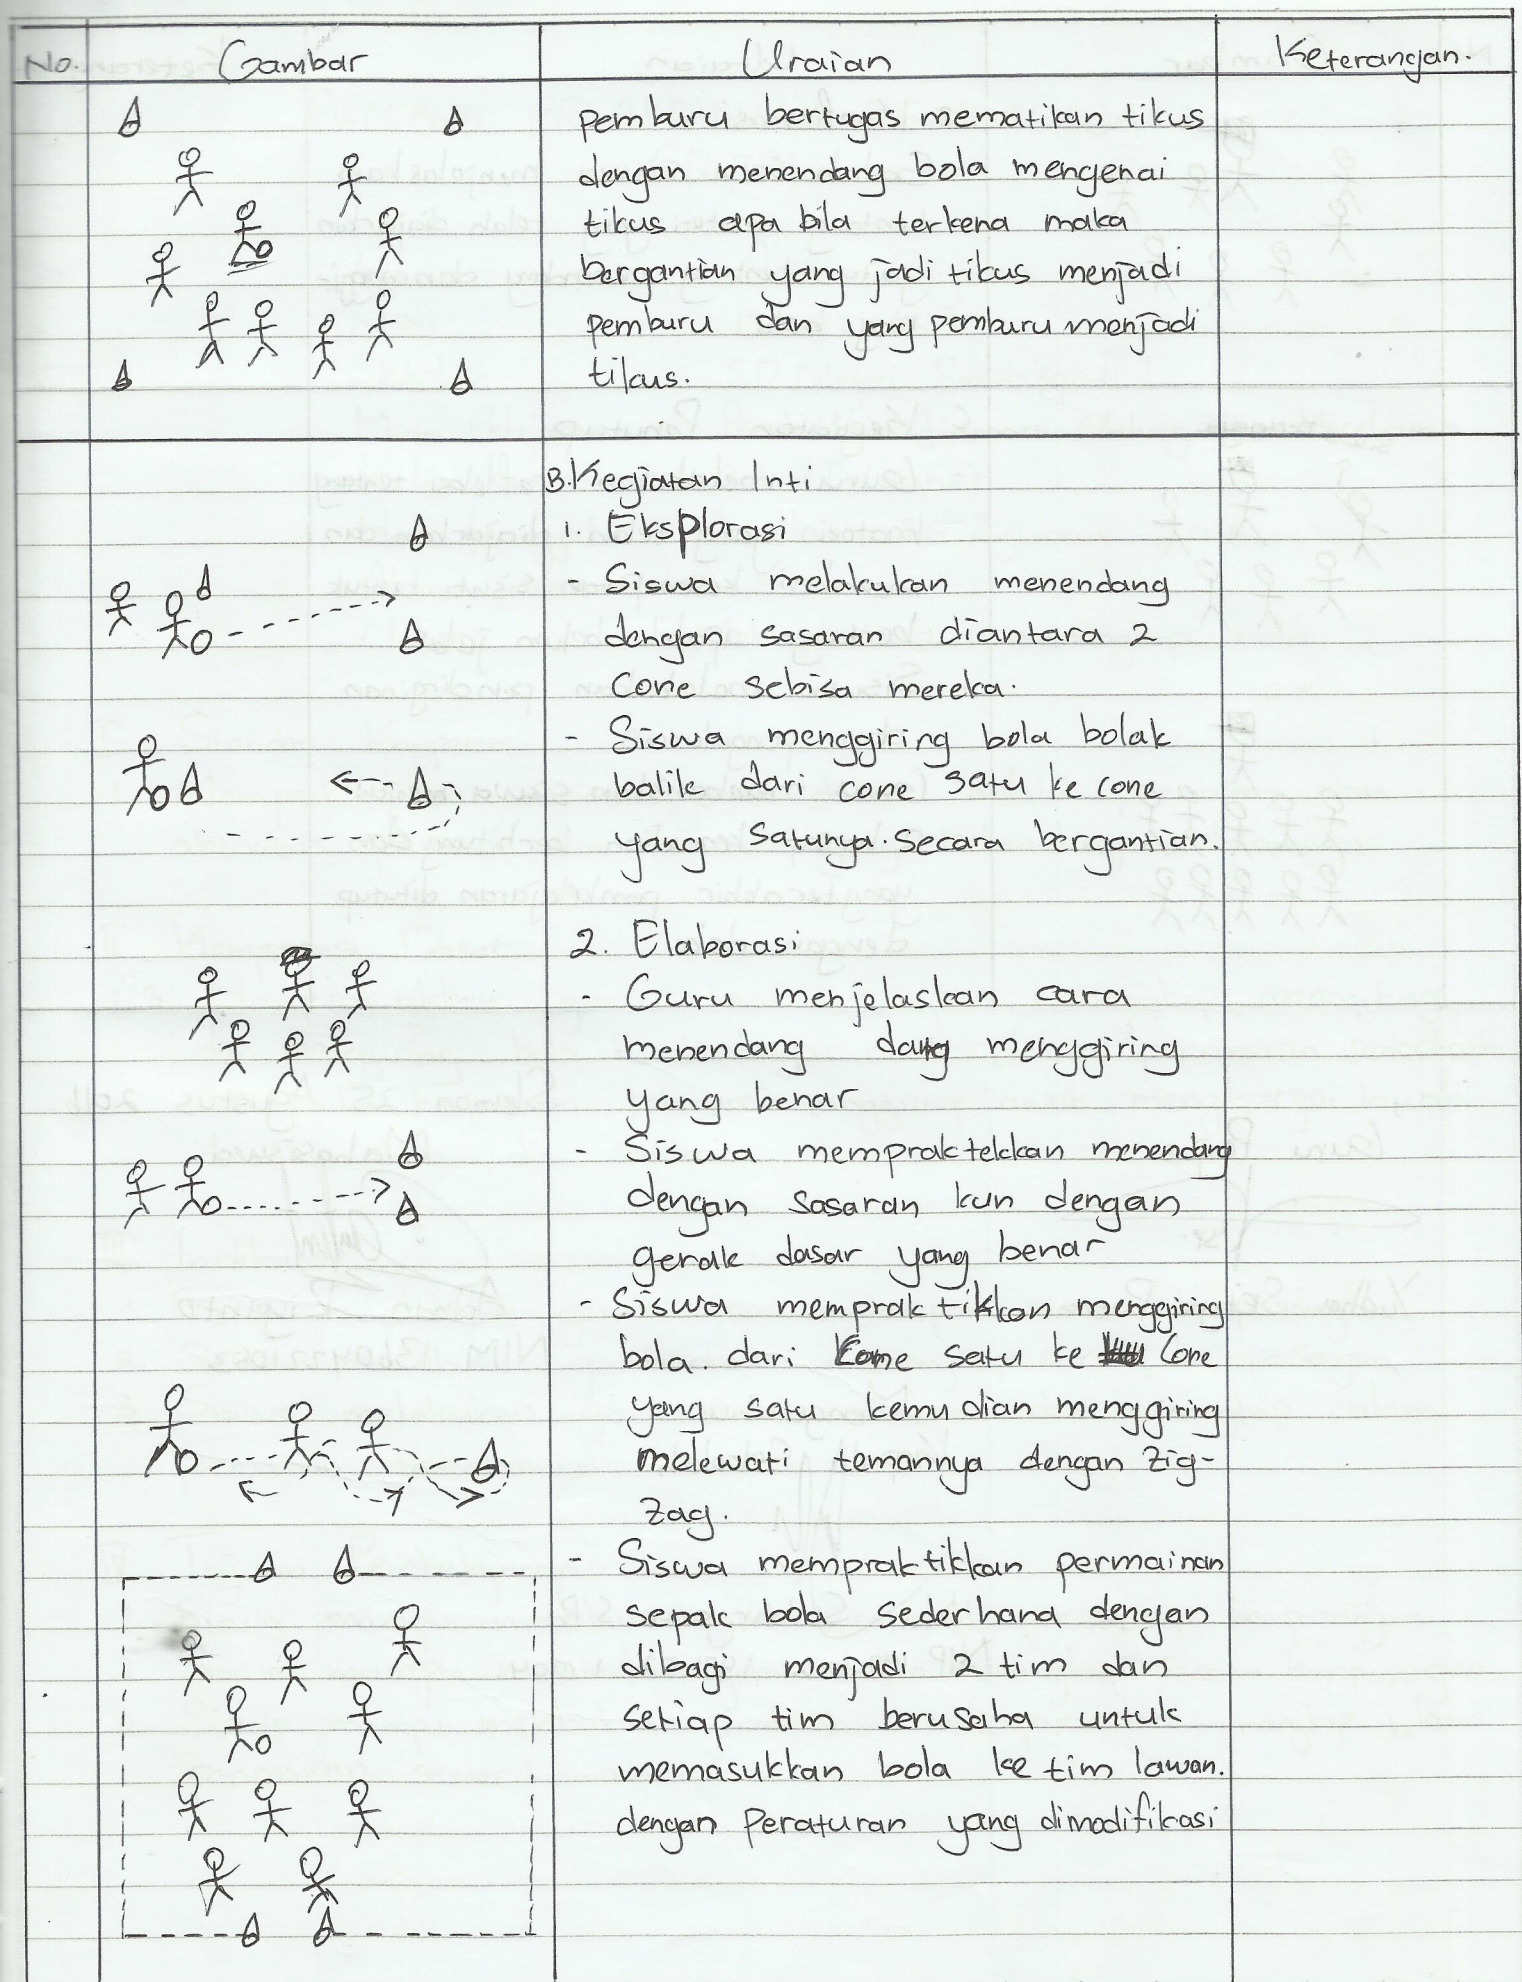 No. Gambar Uraian Keterangan.
pemburu bertugas mematikan tikus
dengan menendang bola mengenai
tikus apa bila terkena maka
bergantian yang jadi tikus menjadi
pemburu dan yang pemburu menjadi
tikus.
B. Kegiatan Inti
1. Eksplorasi
- Siswa melakukan menendang
dengan sasaran diantara 2
Cone sebisa mereka.
- Siswa menggiring bola bolak
balik dari cone satu ke cone
yang satunya. secara bergantian.
2. Elaborasi
- Guru menjelaskan cara
menendang dang menggiring
yang benar
- Siswa mempraktekkan menendang
dengan sasaran kun dengan
gerak dasar yang benar
- Siswa mempraktikkan menggiring
bola. dari Cone satu ke Cone
yang satu kemudian menggiring
melewati temannya dengan zig-
zag.
- Siswa mempraktikkan permainan
sepak bola sederhana dengan
dibagi menjadi 2 tim dan
setiap tim berusaha untuk
memasukkan bola ke tim lawan.
dengan Peraturan yang dimodifikasi